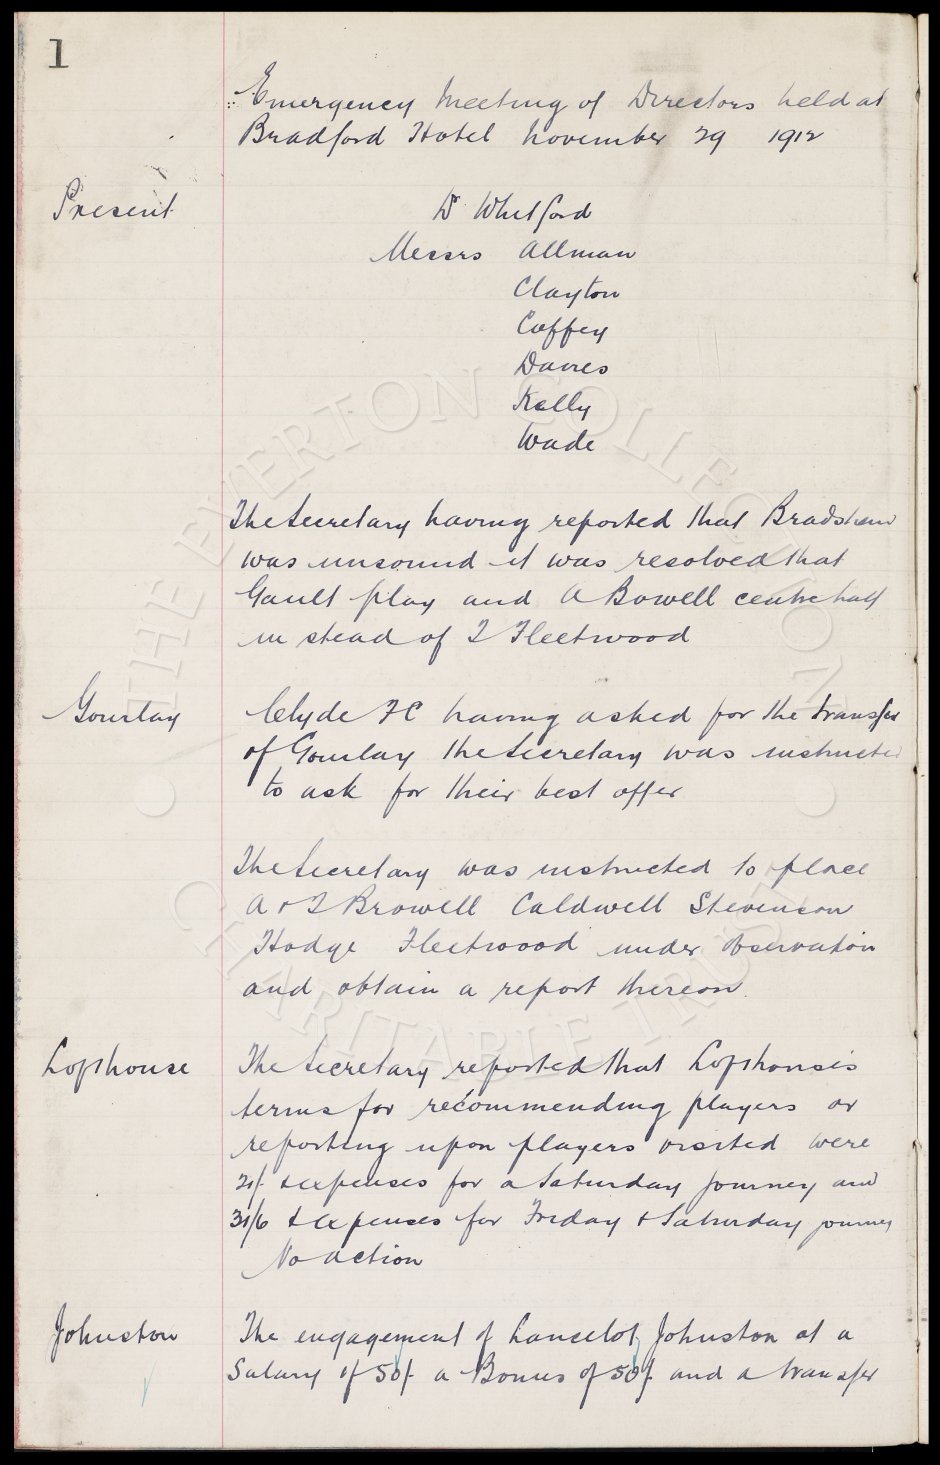 1
Emergency Meeting of Directors held at
Bradford Hotel November 29 1912
Present
Dr Whitford
Messrs Allman
Clayton
Coffey
Davies
Kelly
Wade
The Secretary having reported that Bradshaw
was unsound it was resolved that
Gault play and A Bowell centre half
instead of T Fleetwood
Gourlay
Clyde FC having asked for the transfer
of Gourlay the Secretary was instructed
to ask for their best offer
The Secretary was instructed to place
A & T Browell Caldwell Stevenson
Hodge Fleetwood under observation
and obtain a report thereon.
Lofthouse
The Secretary reported that Lofthouse's
terms for recommending players or
reporting upon players visited were
21/- & expenses for a Saturday journey and
31/6 & expenses for Friday & Saturday journey
No action
Johnston
The engagement of Lancelot Johnston at a
Salary of 50/- a Bonus of 50/- and a transfer
THE EVERTON COLLECTION
CHARITABLE TRUST